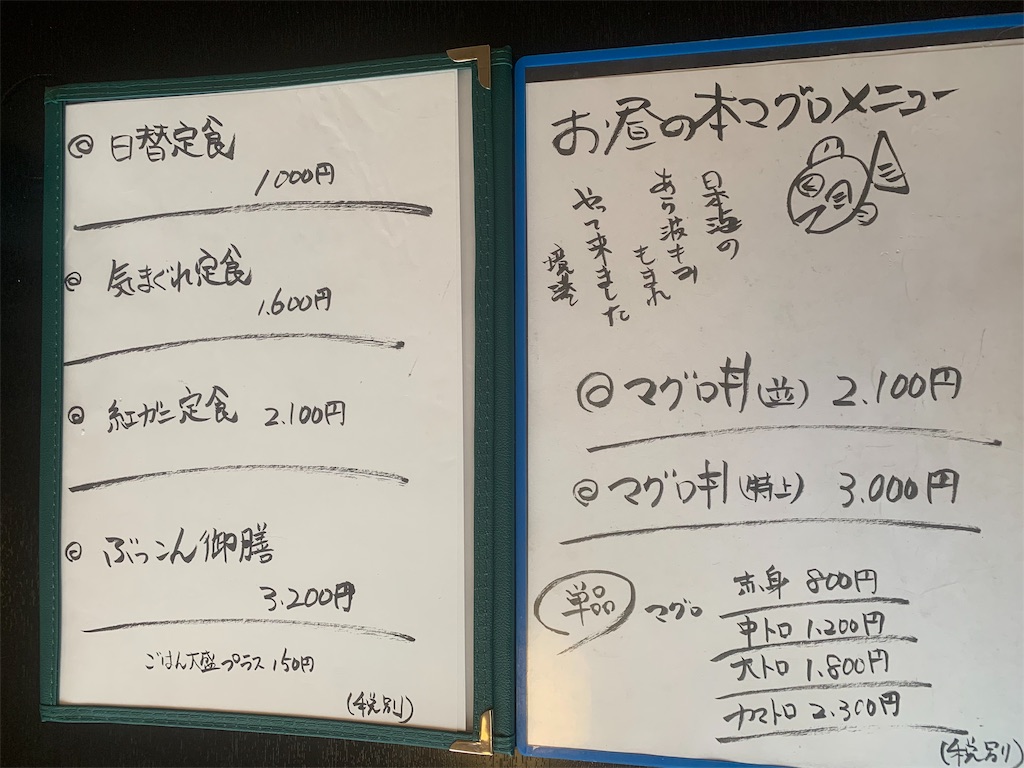 日替定食
1000円
気まぐれ定食
1.600円
紅ガニ定食 2.100円
ぶっこん御膳
3.200円
ごはん大盛プラス150円
(税別)
お昼の本マグロメニュー
日本海の
あら波にも
もまれ
やって来ました
境港
マグロ丼(並) 2.100円
マグロ丼(特上) 3.000円
単品
マグロ
赤身 800円
中トロ 1.200円
大トロ 1.800円
カマトロ 2.300円
(税別)